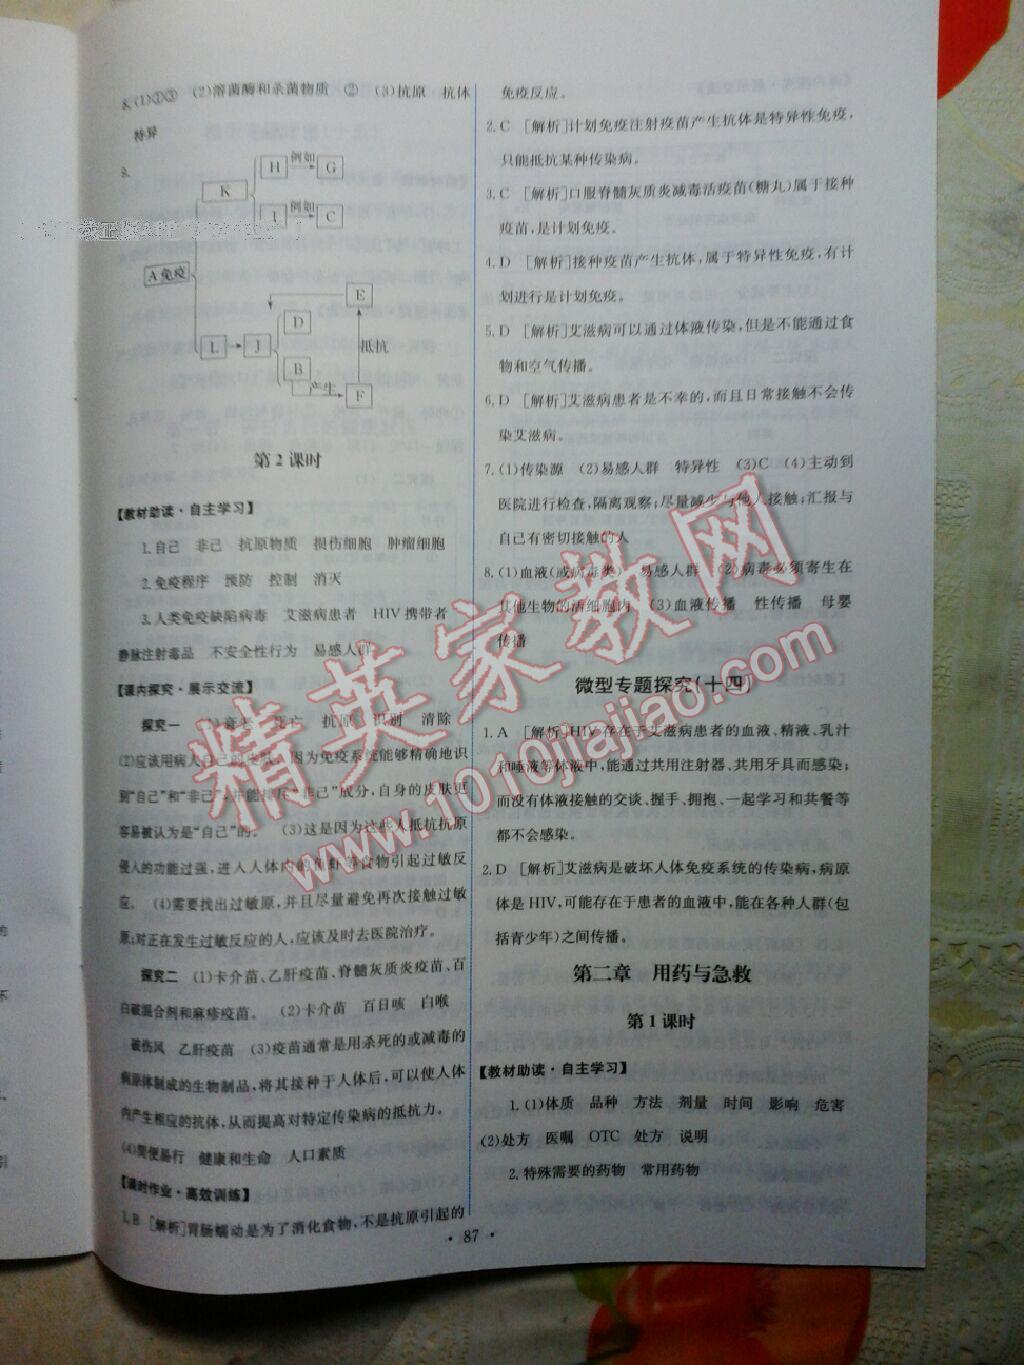 8.(1)①③　(2)溶菌酶和杀菌物质　②　(3)抗原　抗体
特异
9.
H 例如 G
K
I 例如 C
A 免疫
E
D
L J 抵抗
B
产生 F
第 2 课时
【教材助读·自主学习】
1.自己　非己　抗原物质　损伤细胞　肿瘤细胞
2.免疫程序　预防　控制　消灭
3.人类免疫缺陷病毒　艾滋病患者　HIV 携带者
静脉注射毒品　不安全性行为　易感人群
【课内探究·展示交流】
探究一　(1)衰老　死亡　抗原　识别　清除
(2)应该用病人自己的皮肤,因为免疫系统能够精确地识
别“自己”和“非己”,并能排斥“非己”成分,自身的皮肤更
容易被认为是“自己”的。　(3)这是因为这些人抵抗抗原
侵入的功能过强,进入人体内的鱼虾等食物引起过敏反
应。　(4)需要找出过敏原,并且尽量避免再次接触过敏
原;对正在发生过敏反应的人,应该及时去医院治疗。
探究二　(1)卡介苗、乙肝疫苗、脊髓灰质炎疫苗、百
白破混合剂和麻疹疫苗。　(2)卡介苗　百日咳　白喉
破伤风　乙肝疫苗　(3)疫苗通常是用杀死的或减毒的
病原体制成的生物制品,将其接种于人体后,可以使人体
内产生相应的抗体,从而提高对特定传染病的抵抗力。
(4)简便易行　健康和生命　人口素质
【课时作业·高效训练】
1.B　[解析]胃肠蠕动是为了消化食物,不是抗原引起的
免疫反应。
2.C　[解析]计划免疫注射疫苗产生抗体是特异性免疫,
只能抵抗某种传染病。
3.C　[解析]口服脊髓灰质炎减毒活疫苗(糖丸)属于接种
疫苗,是计划免疫。
4.D　[解析]接种疫苗产生抗体,属于特异性免疫,有计
划进行是计划免疫。
5.D　[解析]艾滋病可以通过体液传染,但是不能通过食
物和空气传播。
6.D　[解析]艾滋病患者是不幸的,而且日常接触不会传
染艾滋病。
7.(1)传染源　(2)易感人群　特异性　(3)C　(4)主动到
医院进行检查,隔离观察;尽量减少与他人接触;汇报与
自己有密切接触的人
8.(1)血液(或病毒类)　易感人群　(2)病毒必须寄生在
其他生物的活细胞内　(3)血液传播　性传播　母婴
传播
微型专题探究(十四)
1.A　[解析]HIV 存在于艾滋病患者的血液、精液、乳汁
和唾液等体液中,能通过共用注射器、共用牙具而感染;
而没有体液接触的交谈、握手、拥抱、一起学习和共餐等
都不会感染。
2.D　[解析]艾滋病是破坏人体免疫系统的传染病,病原
体是 HIV,可能存在于患者的血液中,能在各种人群(包
括青少年)之间传播。
第二章　用药与急救
第 1 课时
【教材助读·自主学习】
1.(1)体质　品种　方法　剂量　时间　影响　危害
(2)处方　医嘱　OTC　处方　说明
2.特殊需要的药物　常用药物
· 87 ·
精英家教网
www.1010jiajiao.com